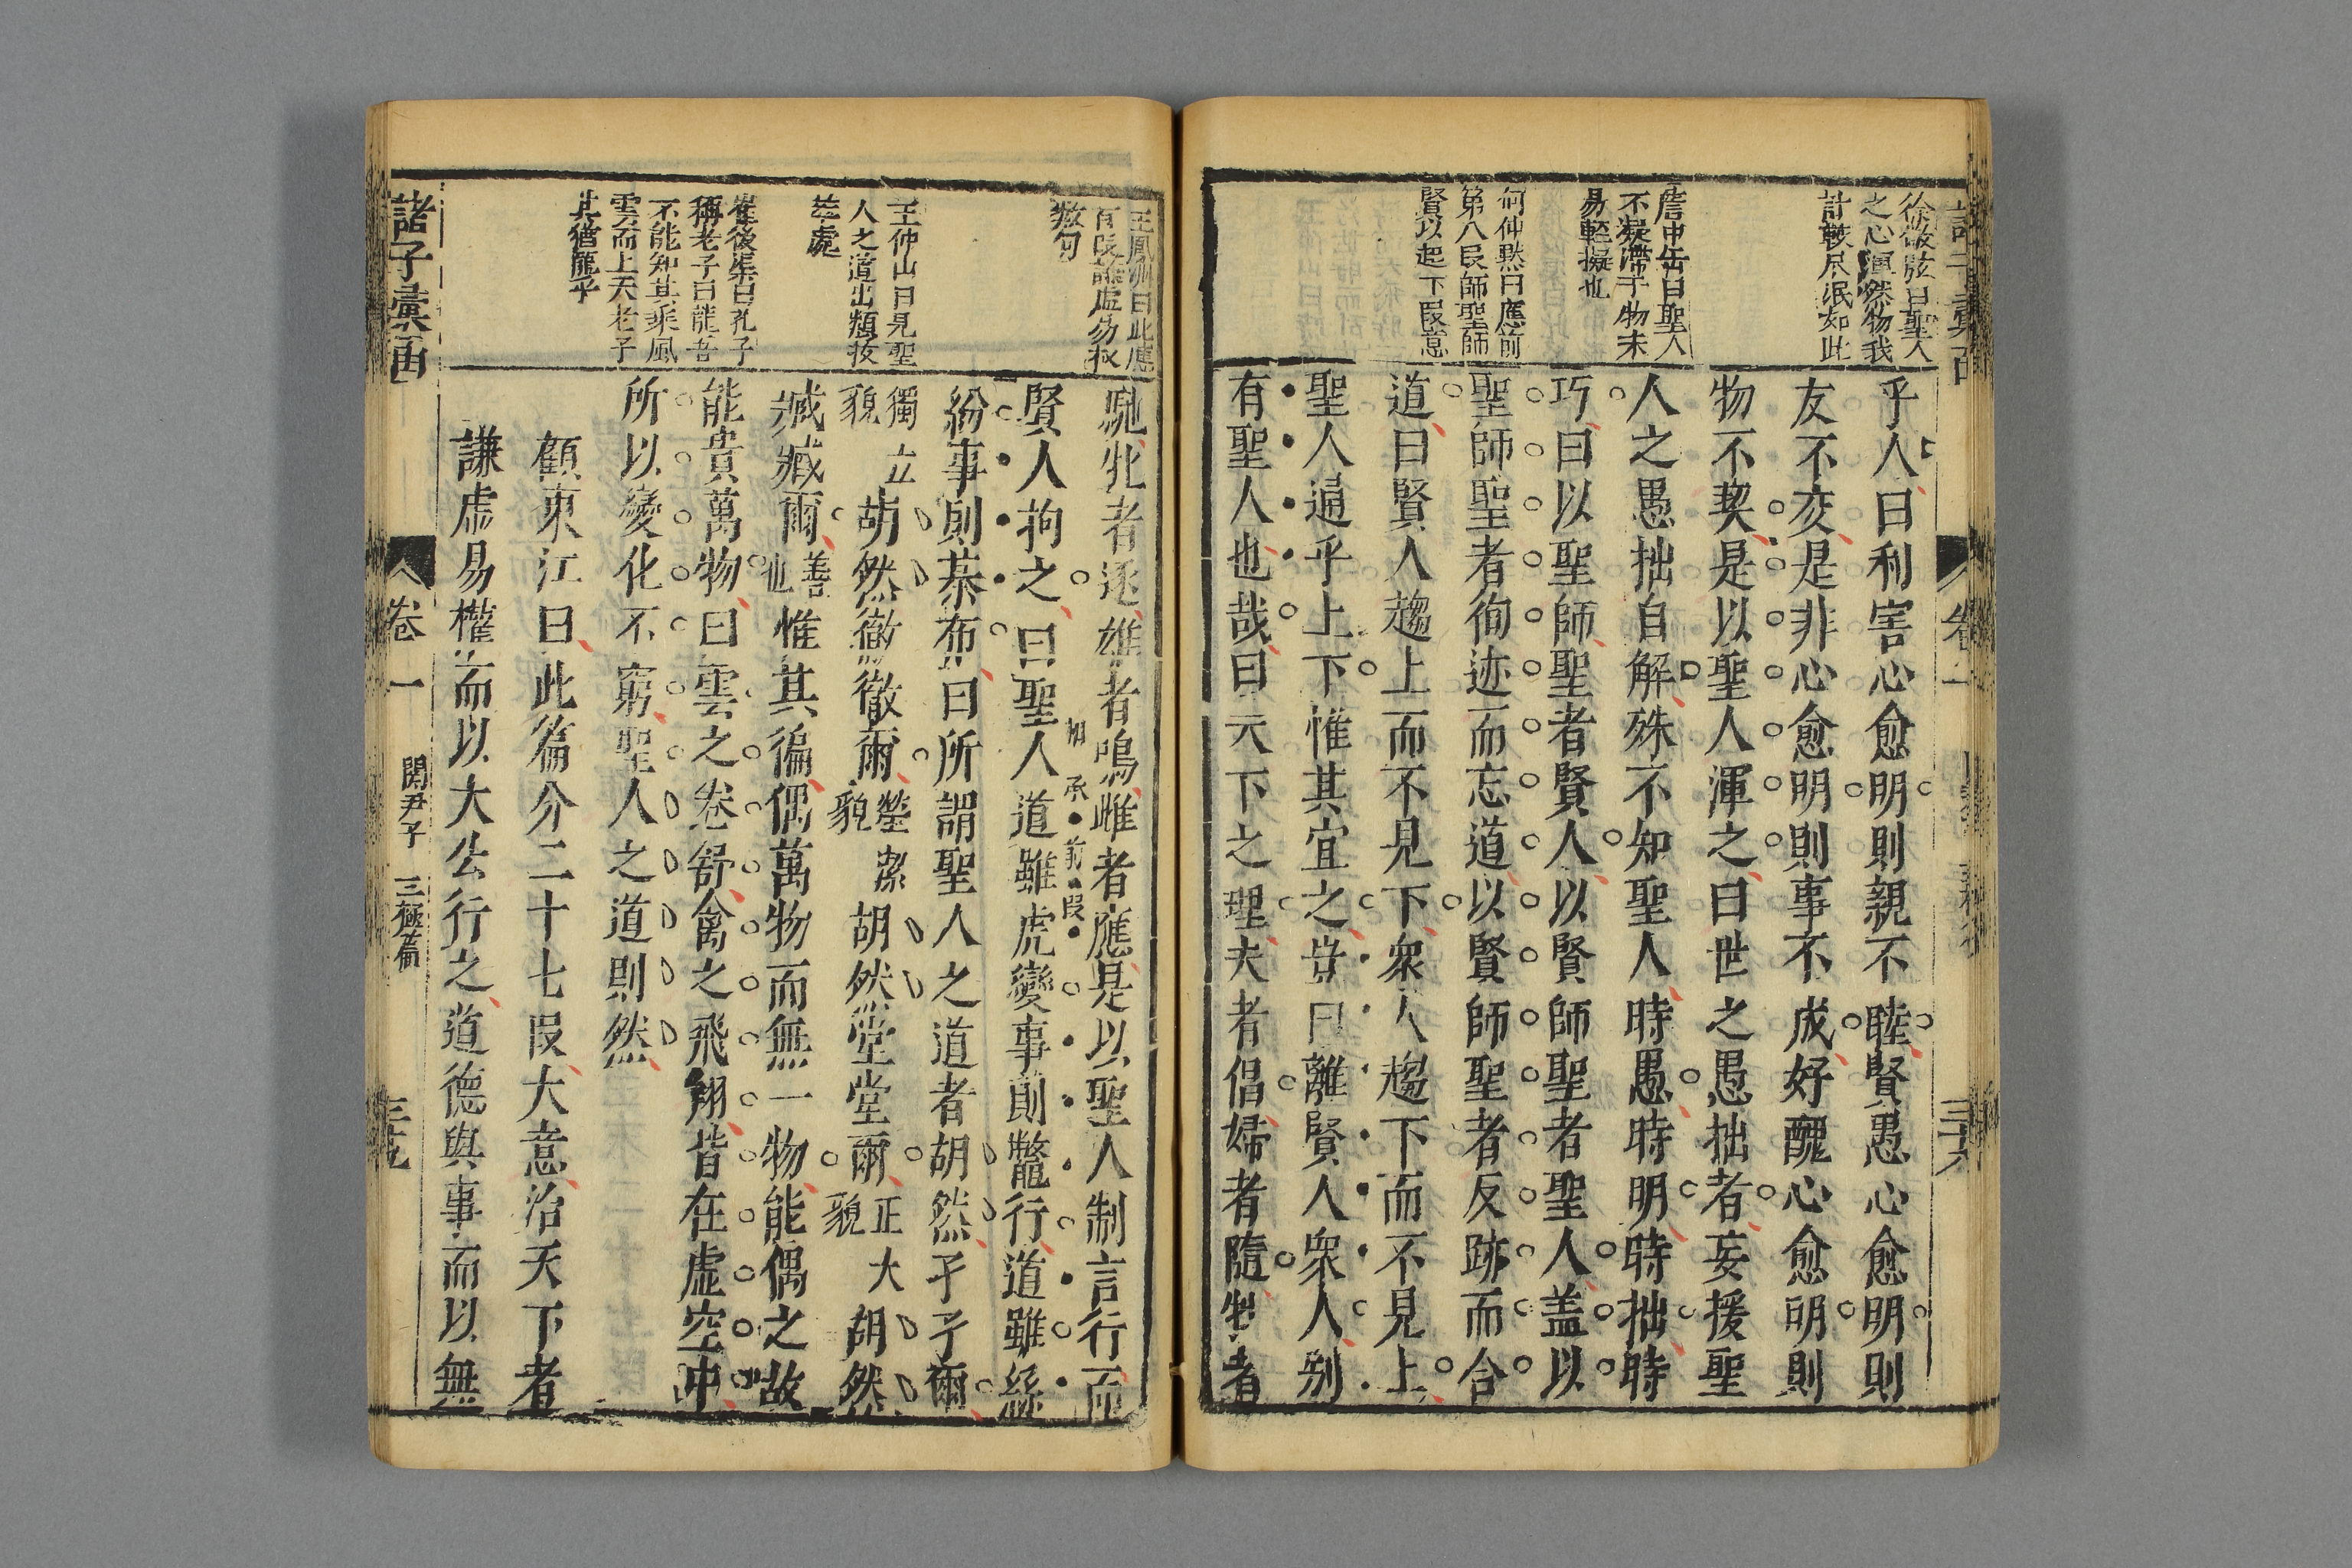 徐儆弦曰聖人
之心渾然物我
計較尽泯如此
詹中岳曰聖人
不凝滯于物未
易輕擬也
何仲默曰應前
第八段師聖師
賢以起下段意
乎人曰利害心愈明則親不睦賢愚心愈明則
友不交是非心愈明則事不成好醜心愈明則
物不契是以聖人渾之曰世之愚拙者妄援聖
人之愚拙自解殊不知聖人時愚時明時拙時
巧曰以聖師聖者賢人以賢師聖者聖人盖以
聖師聖者徇迹而忘道以賢師聖者反跡而合
道曰賢人趨上而不見下衆人趨下而不見上
聖人通乎上下惟其宜之豈曰離賢人衆人别
有聖人也哉曰天下之理夫者倡婦者隨牡者
王鳳洲曰此應
前段謙虛易权
数句
王仲山曰見聖
人之道出類抜
萃處
崔後渠曰孔子
稱老子曰龍吾
不能知其乘風
雲而上天老子
其猶龍乎
馳牝者逐雄者鳴雌者應是以聖人制言行而
賢人拘之曰聖人道雖虎變事則鼈行道雖絲
相承前段
紛事則棊布曰所謂聖人之道者胡然孑孑爾
獨立貌胡然徹徹爾瑩潔貌胡然堂堂爾正大貌胡然
臧臧爾善也惟其徧偶萬物而無一物能偶之故
能貴萬物曰雲之卷舒禽之飛翔皆在虛空中
所以變化不窮聖人之道則然
顧東江曰此篇分二十七段大意治天下者
謙虛易權而以大公行之道德與事而以無
諸子彙函
卷一
関尹子
三極篇
三十七